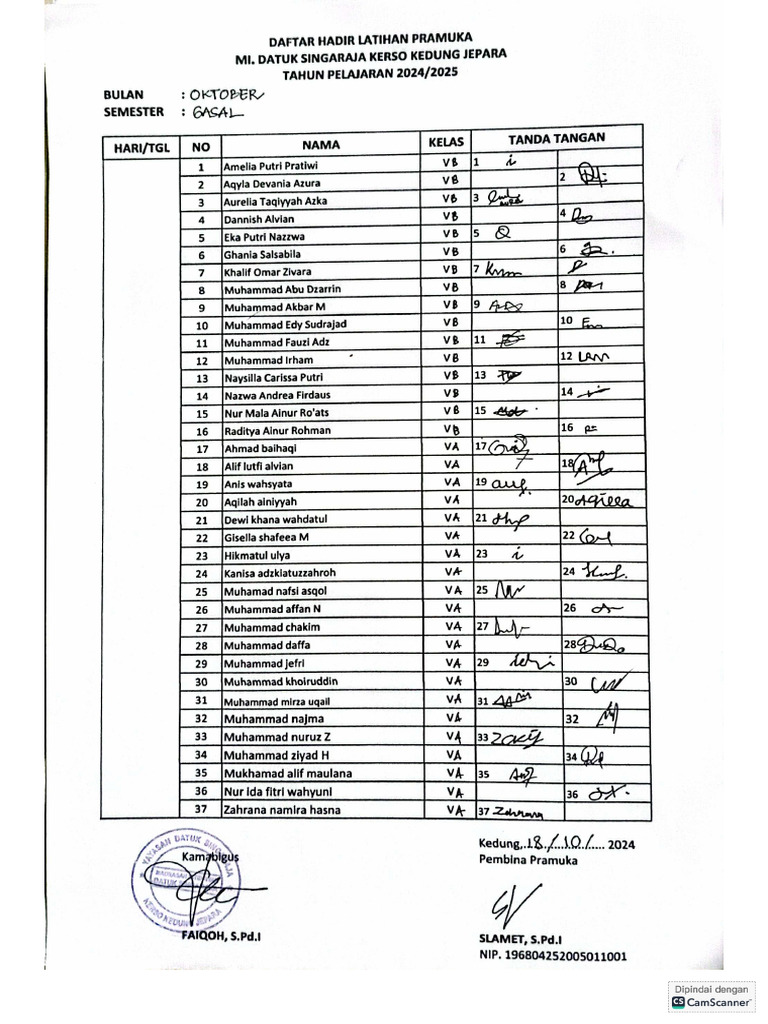 DAFTAR HADIR LATIHAN PRAMUKA
MI. DATUK SINGARAJA KERSO KEDUNG JEPARA
TAHUN PELAJARAN 2024/2025
BULAN : OKTOBER
SEMESTER : GASAL
HARI/TGL NO NAMA KELAS TANDA TANGAN
1 Amelia Putri Pratiwi VB 1
2 Aqyla Devania Azura VB 2
3 Aurelia Taqiyyah Azka VB 3
4 Dannish Alvian VB 4
5 Eka Putri Nazzwa VB 5
6 Ghania Salsabila VB 6
7 Khalif Omar Zivara VB 7
8 Muhammad Abu Dzarrin VB 8
9 Muhammad Akbar M VB 9
10 Muhammad Edy Sudrajad VB 10
11 Muhammad Fauzi Adz VB 11
12 Muhammad Irham VB 12
13 Naysilla Carissa Putri VB 13
14 Nazwa Andrea Firdaus VB 14
15 Nur Mala Ainur Ro'ats VB 15
16 Raditya Ainur Rohman VB 16
17 Ahmad baihaqi VA 17
18 Alif lutfi alvian VA 18
19 Anis wahsyata VA 19
20 Aqilah ainiyyah VA 20
21 Dewi khana wahdatul VA 21
22 Gisella shafeea M VA 22
23 Hikmatul ulya VA 23
24 Kanisa adzkiatuzzahroh VA 24
25 Muhamad nafsi asqol VA 25
26 Muhammad affan N VA 26
27 Muhammad chakim VA 27
28 Muhammad daffa VA 28
29 Muhammad jefri VA 29
30 Muhammad khoiruddin VA 30
31 Muhammad mirza uqail VA 31
32 Muhammad najma VA 32
33 Muhammad nuruz Z VA 33
34 Muhammad ziyad H VA 34
35 Mukhamad alif maulana VA 35
36 Nur ida fitri wahyuni VA 36
37 Zahrana namira hasna VA 37 Zahrana
Kedung, 18/10/ 2024
Kamabigus
Pembina Pramuka
YAYASAN DATUK SINGARAJA
KERSO KEDUNG JEPARA
FAIQOH, S.Pd.I
SLAMET, S.Pd.I
NIP. 196804252005011001
Dipindai dengan
CS CamScanner